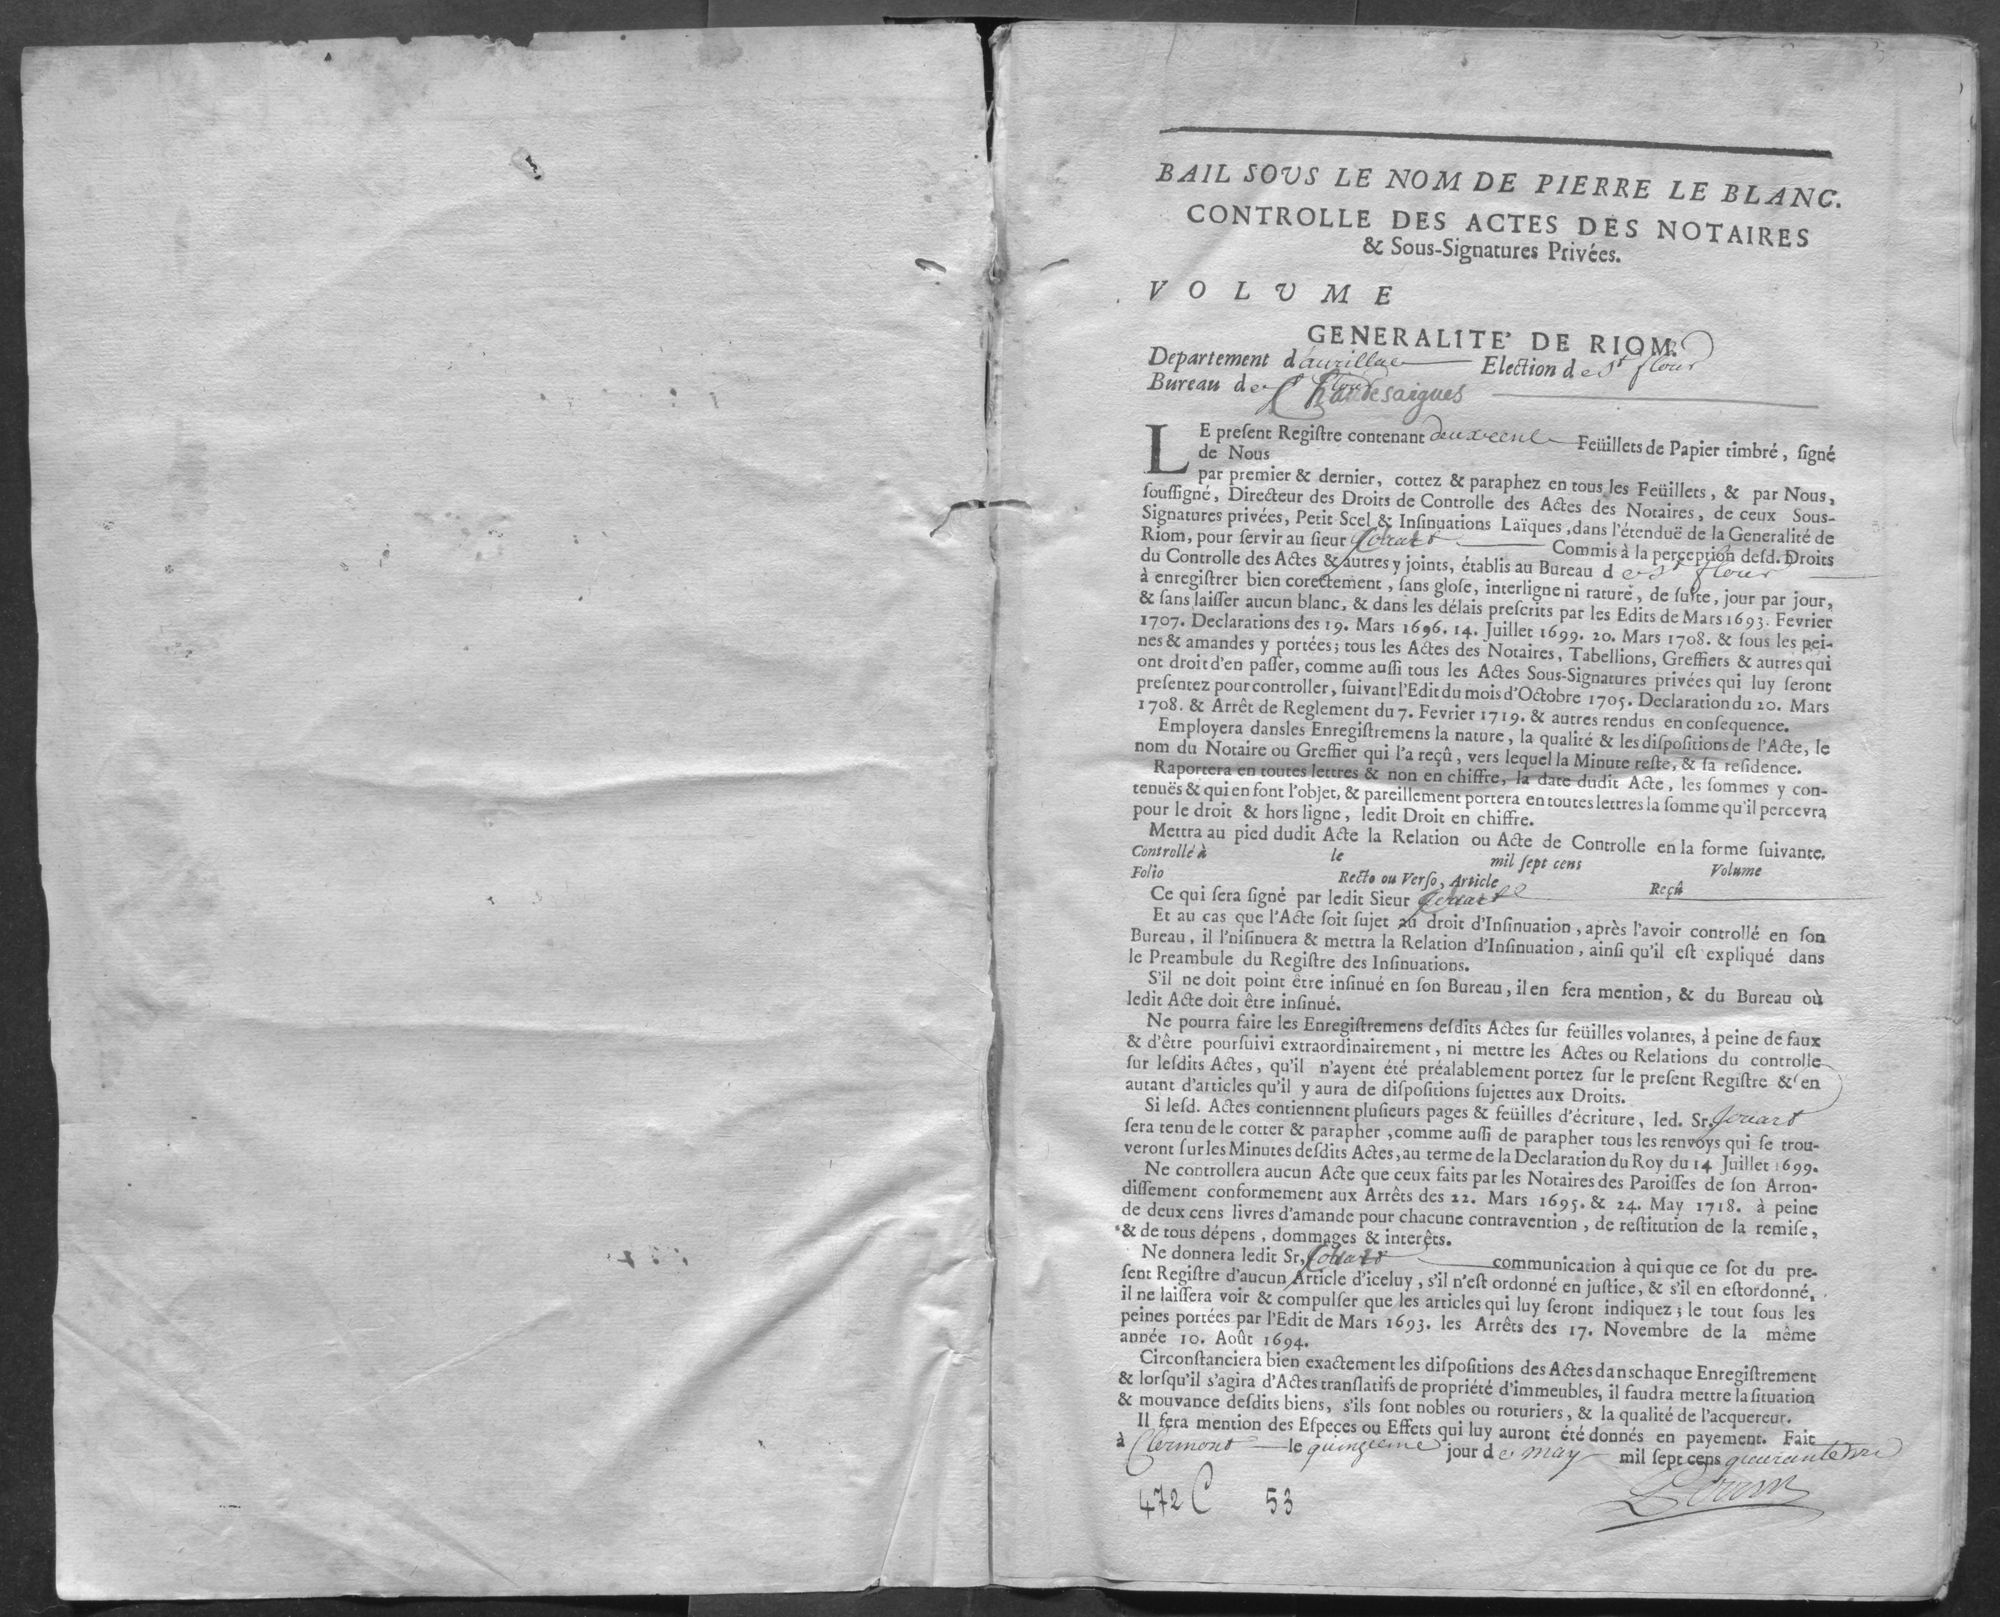 BAIL SOUS LE NOM DE PIERRE LE BLANC.
CONTROLLE DES ACTES DES NOTAIRES
& Sous-Signatures Privées.
VOLUME
GENERALITE' DE RIOM.
Departement d'aurillac Election de St flour
Bureau de Chaudesaigues
LE preſent Regiſtre contenant deux cent Feüillets de Papier timbré, ſigné
de Nous
par premier & dernier, cottez & paraphez en tous les Feüillets, & par Nous,
ſouſſigné, Directeur des Droits de Controlle des Actes des Notaires, de ceux Sous-
Signatures privées, Petit Scel & Inſinuations Laïques, dans l'étenduë de la Generalité de
Riom, pour ſervir au ſieur Couart Commis à la perception deſd. Droits
du Controlle des Actes & autres y joints, établis au Bureau de St flour
à enregiſtrer bien corectement, ſans gloſe, interligne ni rature, de ſuite, jour par jour,
& ſans laiſſer aucun blanc, & dans les délais preſcrits par les Edits de Mars 1693. Fevrier
1707. Declarations des 19. Mars 1696. 14. Juillet 1699. 20. Mars 1708. & ſous les pei-
nes & amandes y portées; tous les Actes des Notaires, Tabellions, Greffiers & autres qui
ont droit d'en paſſer, comme auſſi tous les Actes Sous-Signatures privées qui luy ſeront
preſentez pour controller, ſuivant l'Edit du mois d'Octobre 1705. Declaration du 20. Mars
1708. & Arrêt de Reglement du 7. Fevrier 1719. & autres rendus en conſequence.
Employera dans les Enregiſtremens la nature, la qualité & les diſpoſitions de l'Acte, le
nom du Notaire ou Greffier qui l'a reçû, vers lequel la Minute reſte, & ſa reſidence.
Raportera en toutes lettres & non en chiffre, la date dudit Acte, les ſommes y con-
tenuës & qui en font l'objet, & pareillement portera en toutes lettres la ſomme qu'il percevra
pour le droit & hors ligne, ledit Droit en chiffre.
Mettra au pied dudit Acte la Relation ou Acte de Controlle en la forme ſuivante.
Controllé à le mil ſept cens Volume
Folio Recto ou Verſo, Article Reçû
Ce qui ſera ſigné par ledit Sieur Couart
Et au cas que l'Acte ſoit ſujet au droit d'Inſinuation, après l'avoir controllé en ſon
Bureau, il l'niſinuera & mettra la Relation d'Inſinuation, ainſi qu'il eſt expliqué dans
le Preambule du Regiſtre des Inſinuations.
S'il ne doit point être inſinué en ſon Bureau, il en fera mention, & du Bureau où
ledit Acte doit être inſinué.
Ne pourra faire les Enregiſtremens deſdits Actes ſur feüilles volantes, à peine de faux
& d'être pourſuivi extraordinairement, ni mettre les Actes ou Relations du controlle
ſur leſdits Actes, qu'il n'ayent été préalablement portez ſur le preſent Regiſtre & en
autant d'articles qu'il y aura de diſpoſitions ſujettes aux Droits.
Si leſd. Actes contiennent pluſieurs pages & feüilles d'écriture, led. Sr. Couart
ſera tenu de le cotter & parapher, comme auſſi de parapher tous les renvoys qui ſe trou-
veront ſur les Minutes deſdits Actes, au terme de la Declaration du Roy du 14 Juillet 1699.
Ne controllera aucun Acte que ceux faits par les Notaires des Paroiſſes de ſon Arron-
diſſement conformement aux Arrêts des 22. Mars 1695. & 24. May 1718. à peine
de deux cens livres d'amande pour chacune contravention, de reſtitution de la remiſe,
& de tous dépens, dommages & interêts.
Ne donnera ledit Sr, Couart communication à qui que ce ſot du pre-
ſent Regiſtre d'aucun Article d'iceluy, s'il n'eſt ordonné en juſtice, & s'il en eſtordonné,
il ne laiſſera voir & compulſer que les articles qui luy ſeront indiquez; le tout ſous les
peines portées par l'Edit de Mars 1693. les Arrêts des 17. Novembre de la même
année 10. Août 1694.
Circonſtanciera bien exactement les diſpoſitions des Actes dans chaque Enregiſtrement
& lorſqu'il s'agira d'Actes tranſlatifs de propriété d'immeubles, il faudra mettre la ſituation
& mouvance deſdits biens, s'ils ſont nobles ou roturiers, & la qualité de l'acquereur.
Il fera mention des Eſpeces ou Effets qui luy auront été donnés en payement. Fait
à Clermont le quinzieme jour de may mil ſept cens quarante
472 C 53